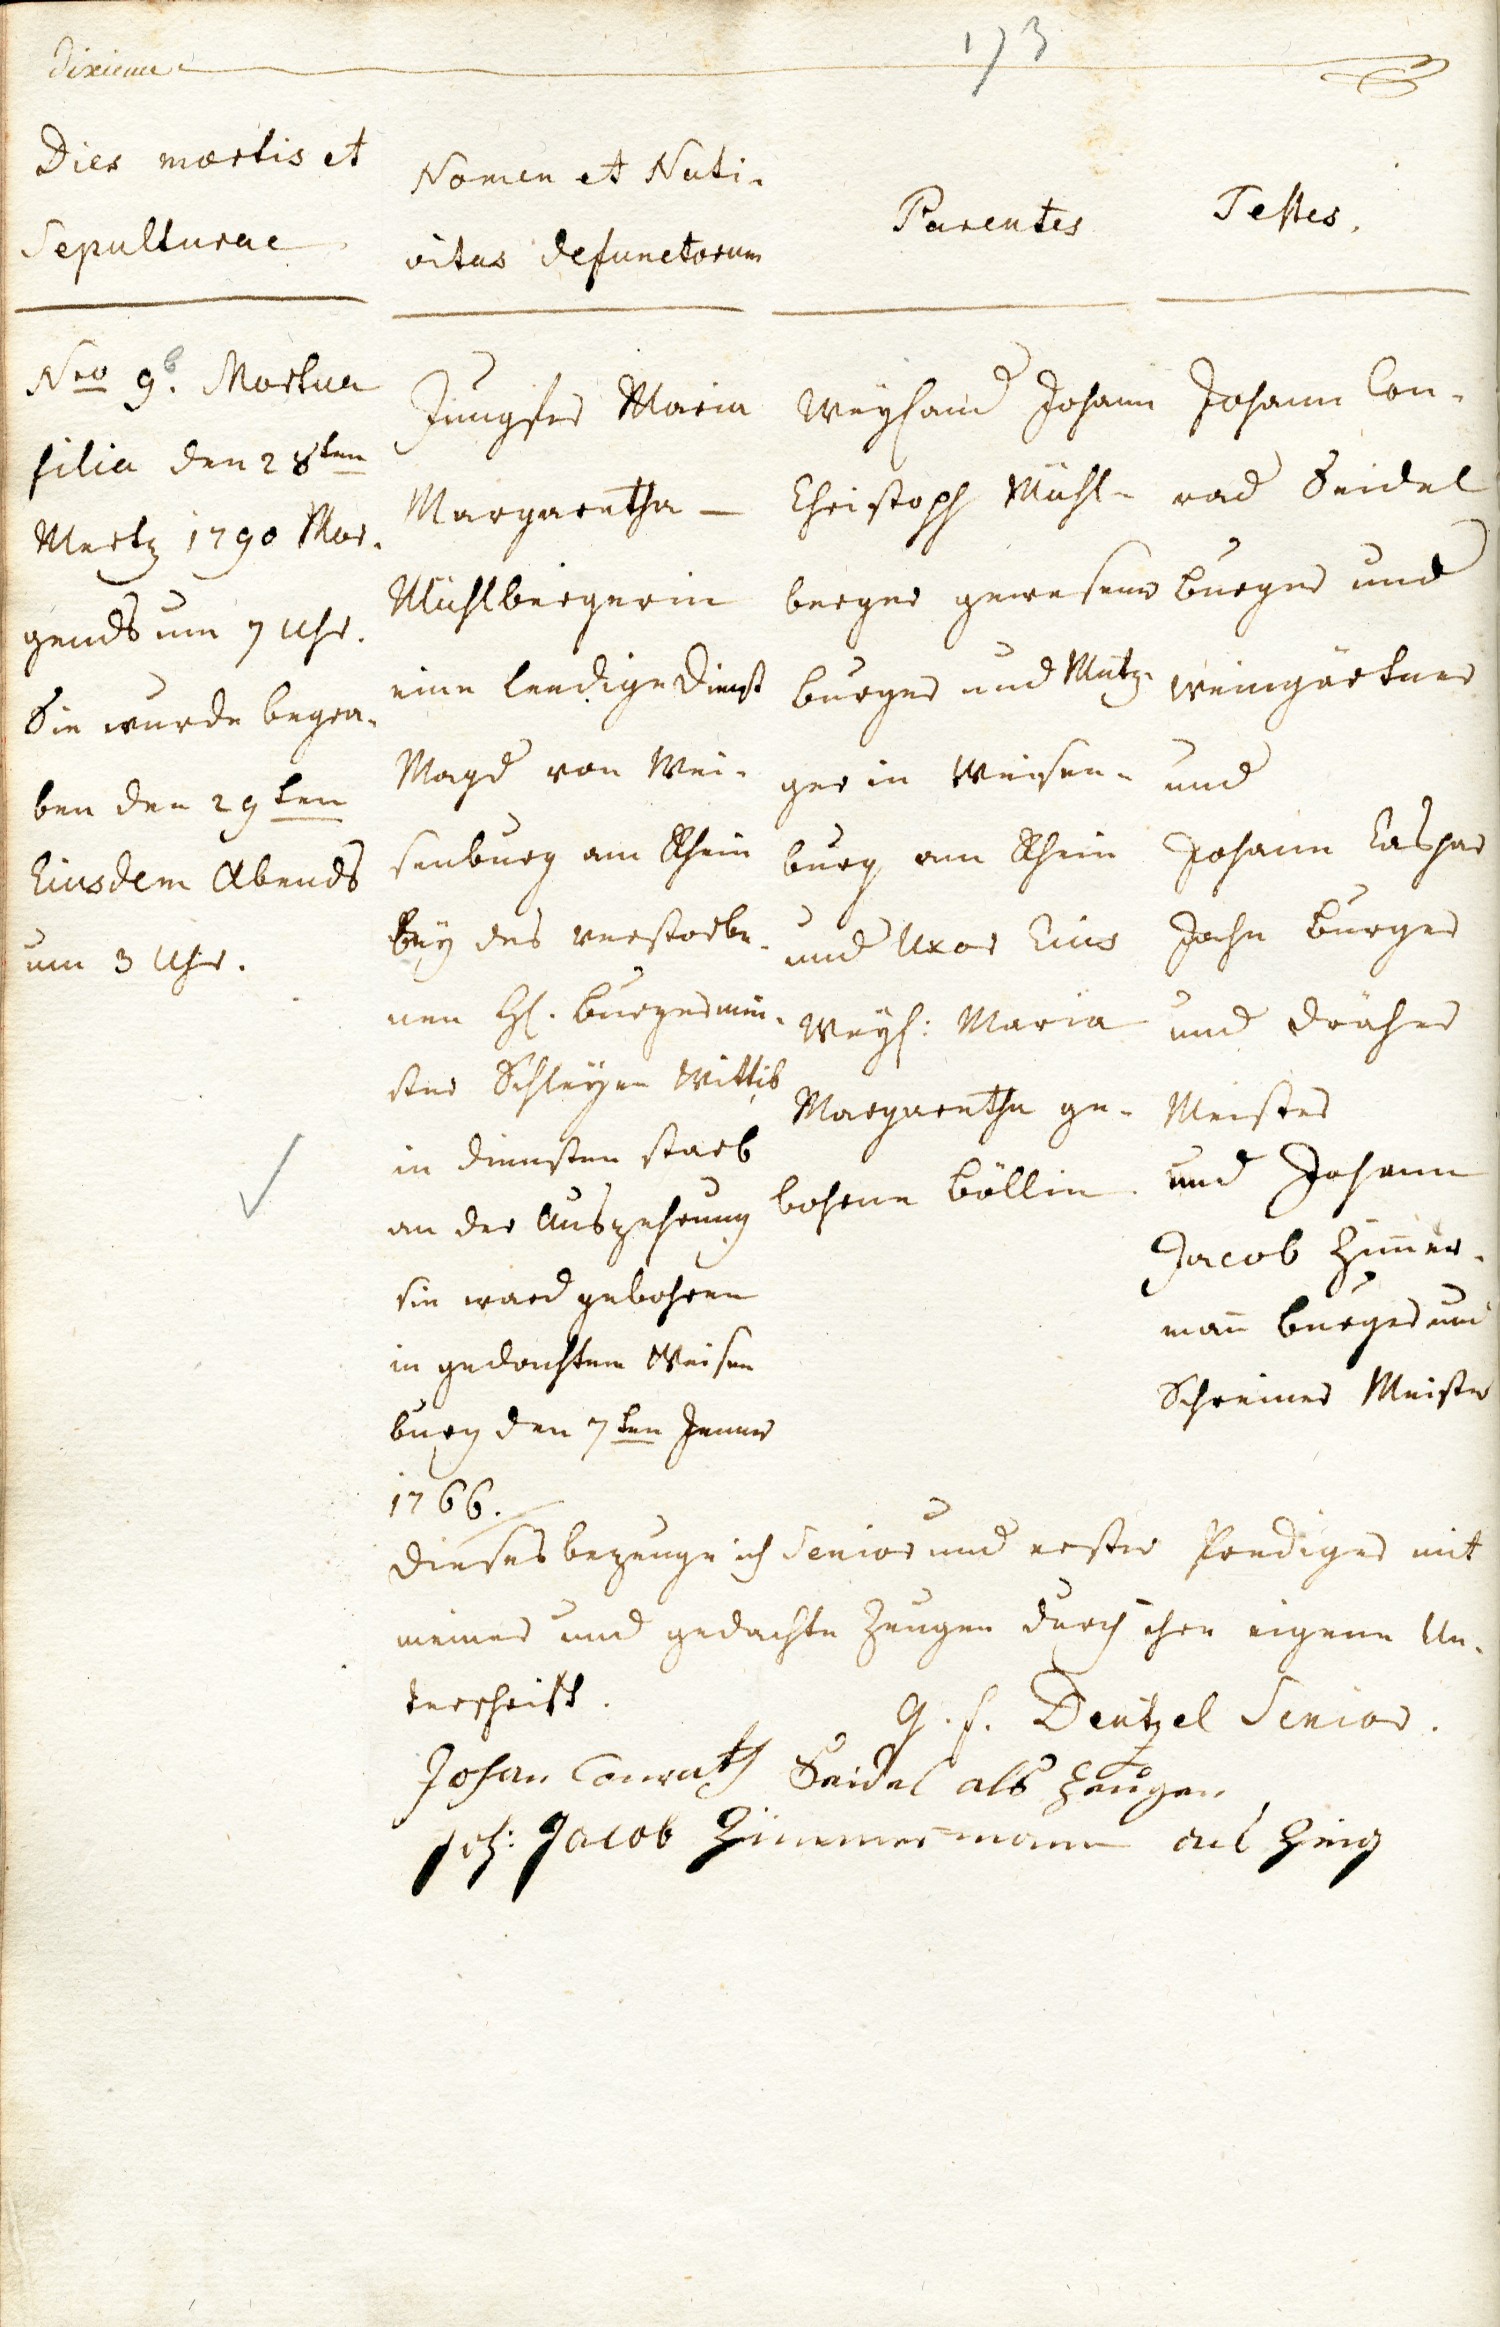 dixieme
173
Dies mortis et
Sepulturae
Nomen et Nati-
vitas defunctorum
Parentes
Testes.
Nro 9. Mortua
filia den 28ten
Mertz 1790 Mor-
gends um 7 Uhr.
Sie wurde begra-
ben den 29ten
Eiusdem Abends
um 3 Uhr.
Jungfer Maria
Margaretha
Mühlbergerin
eine leedige Dienst
Magd von Wei-
senburg am Rhein
bey des verstorbe-
nen H. Burgermei-
ster Schleyen Wittib
in diensten starb
an der Auszehrung
sie ward gebohren
in gedachtem Weisen
burg den 7ten Jenner
1766.
Weyland Johann
Christoph Mühl-
berger gewesener
burger und Metz-
ger in Weisen-
burg am Rhein
und Uxor Eius
Weyl: Maria
Margaretha ge-
bohrne Böllin
Johann Con-
rad Seidel
burger und
weingärtner
und
Johann Caspar
Jahn burger
und dräher
Meister
und Johann
Jacob Zimer-
man burger und
Schreiner Meister
dieses bezeuge ich Senior und erster Prediger mit
meiner und gedachte Zeugen durch ihre eigene Un-
terschrift.
G. f. Dentzel Senior.
Johan Conrath Seidel als Zeugen
Joh: Jacob Zimmermann als Zeig